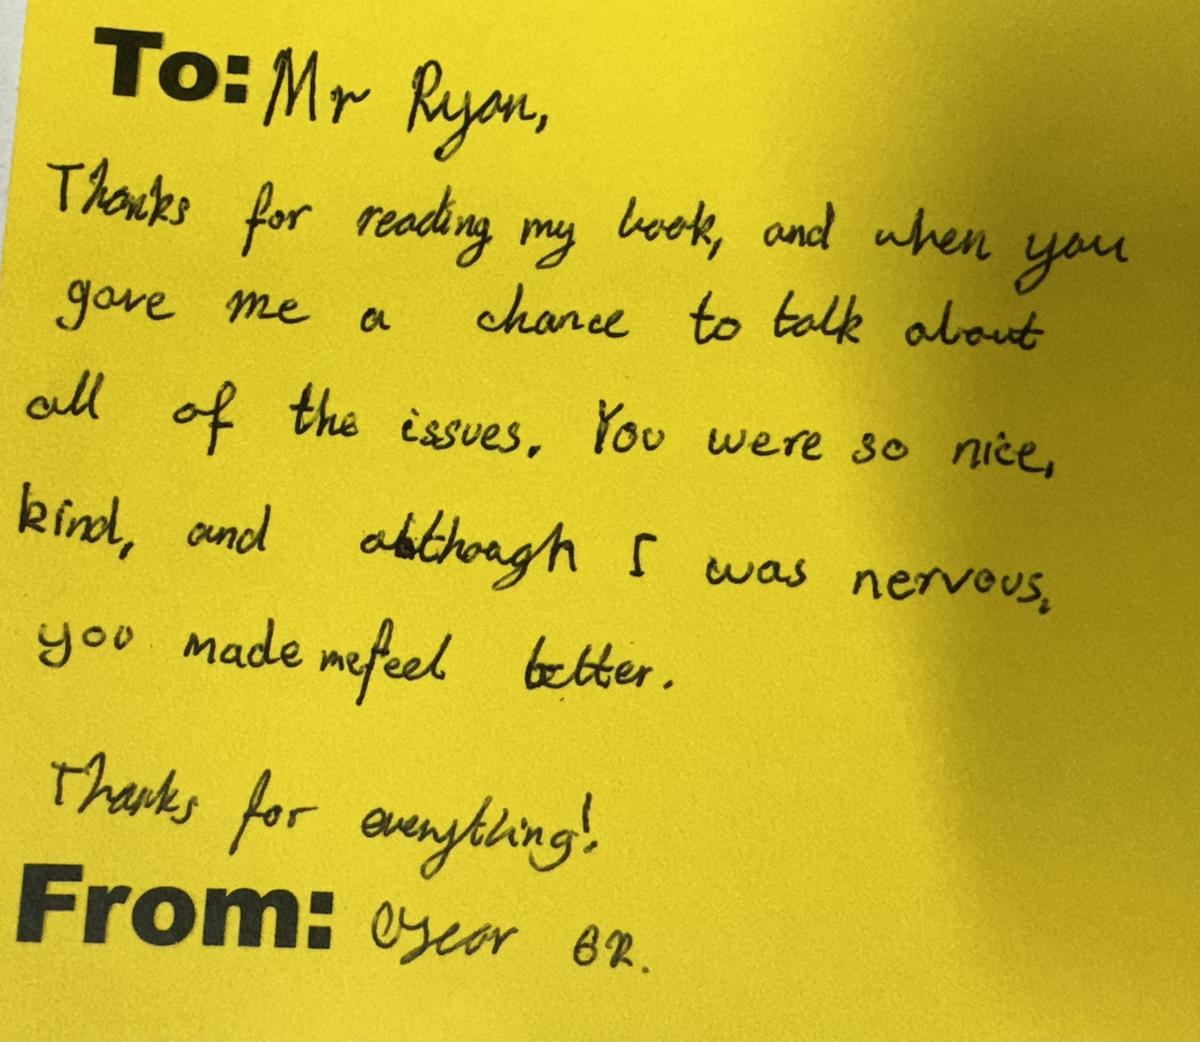 To: Mr Ryan,
Thanks for reading my book, and when you
gave me a chance to talk about
all of the issues. You were so nice,
kind, and although I was nervous,
you made me feel better.
Thanks for everything!
From: 6R.